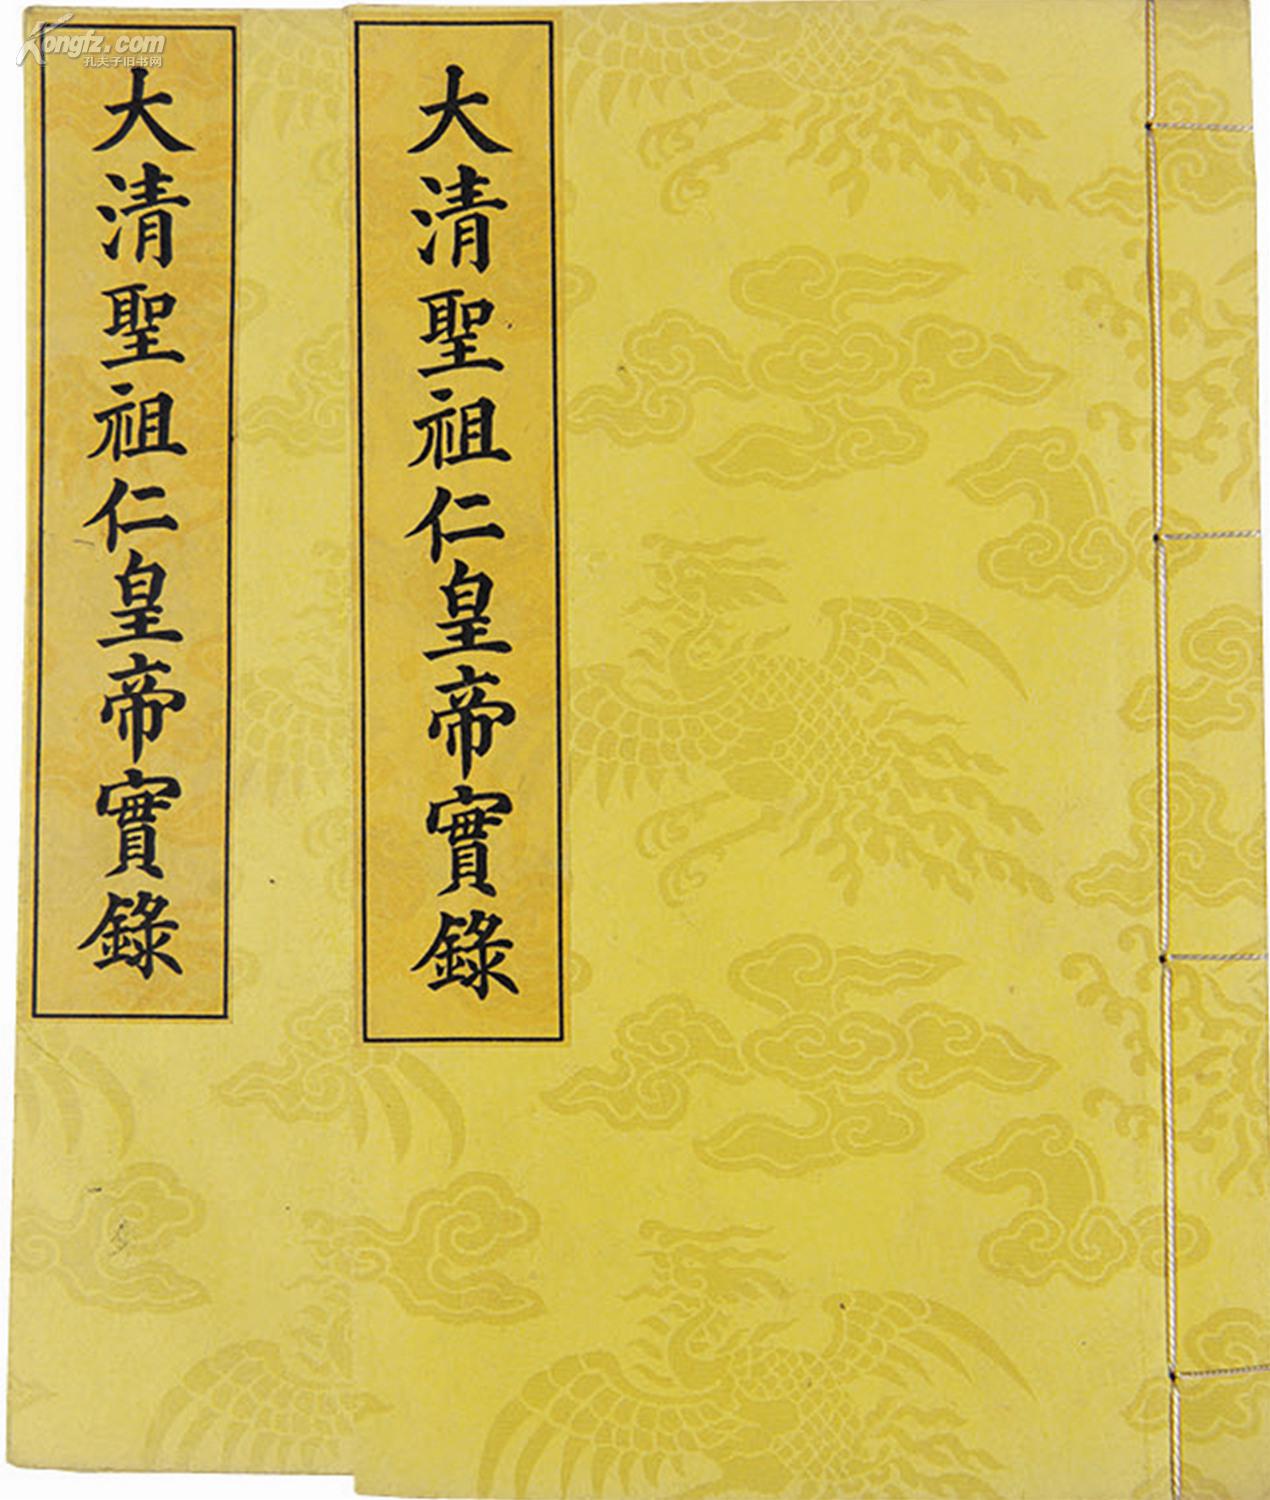 Kongfz.com
孔夫子旧书网
大清聖祖仁皇帝實錄
大清聖祖仁皇帝實錄